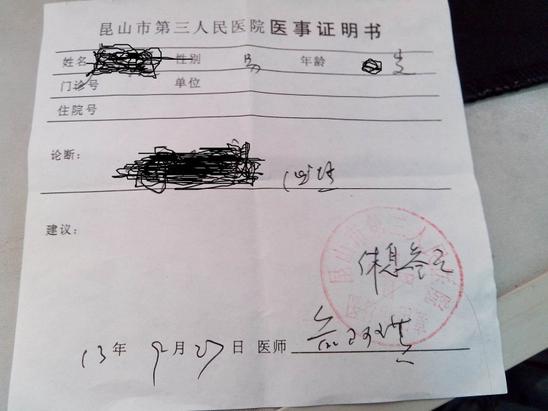 昆山市第三人民医院医事证明书
姓名 性别 男 年龄 岁
门诊号 单位
住院号
论断：
建议：
休息叁天
13年9月27日 医师
昆山市第三人民医院